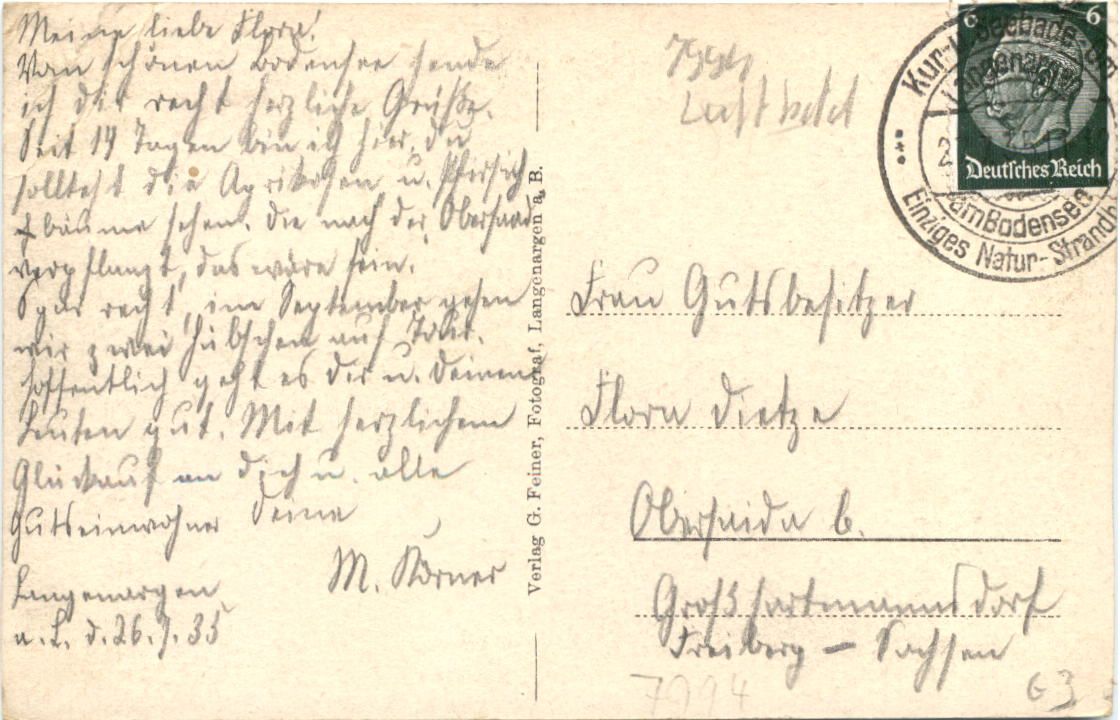 Meine liebe Flora!
Vom schönen Bodensee sende
ich dir recht herzliche Grüße.
Seit 14 Tagen bin ich hier, du
solltest die Aprikosen u. Pfirsich
bäume sehen. Die nach der Obersaida
verpflanzt, das wäre fein.
Spar recht, im September gehen
wir zwei Hübschen auf Tour.
Hoffentlich geht es dir u. deinen
Leuten gut. Mit herzlichem
Glückauf an dich u. alle
Gutseinwohner Deine
M. Körner
Langenargen
a. B. d. 26.7.35
Verlag G. Feiner, Fotograf, Langenargen a. B.
6 6
Deutsches Reich
Kur- u. Seebade-Ort
Langenargen
am Bodensee
Einziges Natur-Strandb
Frau Gutsbesitzer
Flora Dietze
Obersaida b.
Großhartmannsdorf
Freiberg - Sachsen
7994
G3